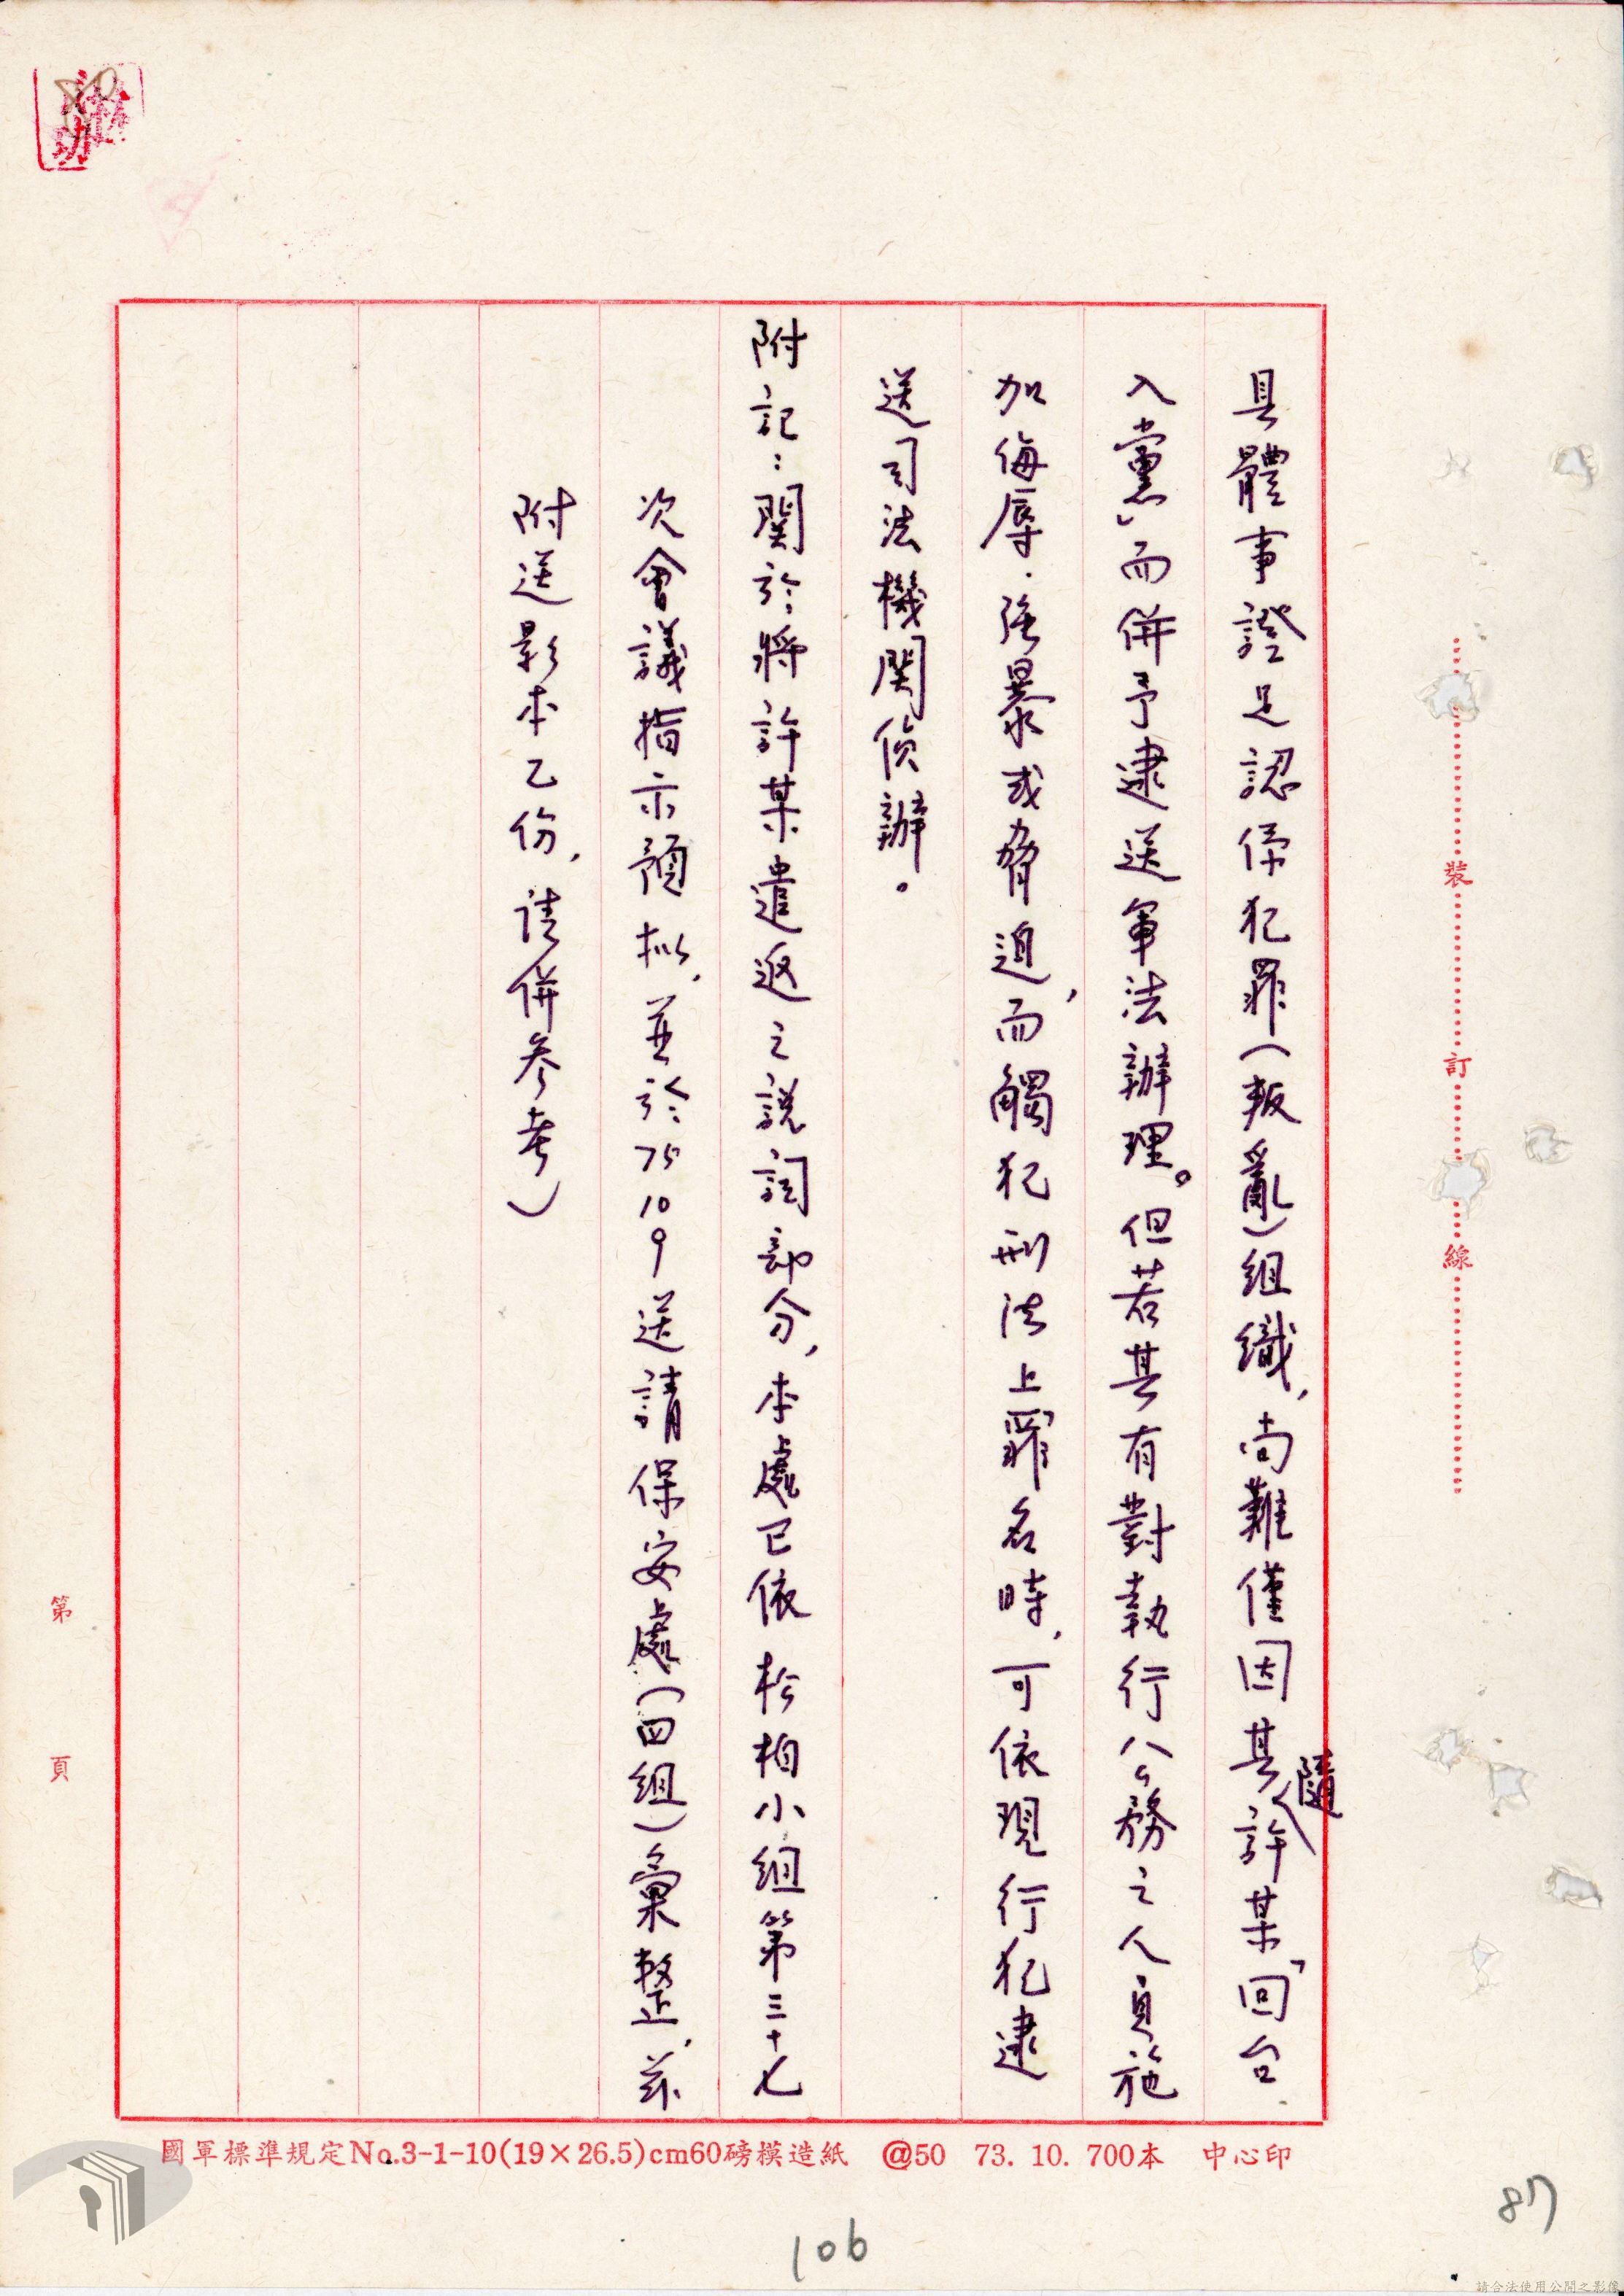 具體事證足認係犯罪(叛亂)組織，尚難僅因其隨許某「回台
入黨」而併予逮送軍法辦理。但若其有對執行公務之人員施
加侮辱．強暴或脅迫，而觸犯刑法上罪名時，可依現行犯逮
送司法機関偵辦。
附記：関於將許某遣返之説詞部分，本處已依松柏小組第三十七
次會議指示預拟，並於75 10 9送請保安處(四組)彙整，茲
附送影本乙份，請併参考)
裝
訂
線
第
頁
國軍標準規定No.3-1-10(19×26.5)cm60磅模造紙 @50 73. 10. 700本 中心印
106
87
請合法使用公開之影像